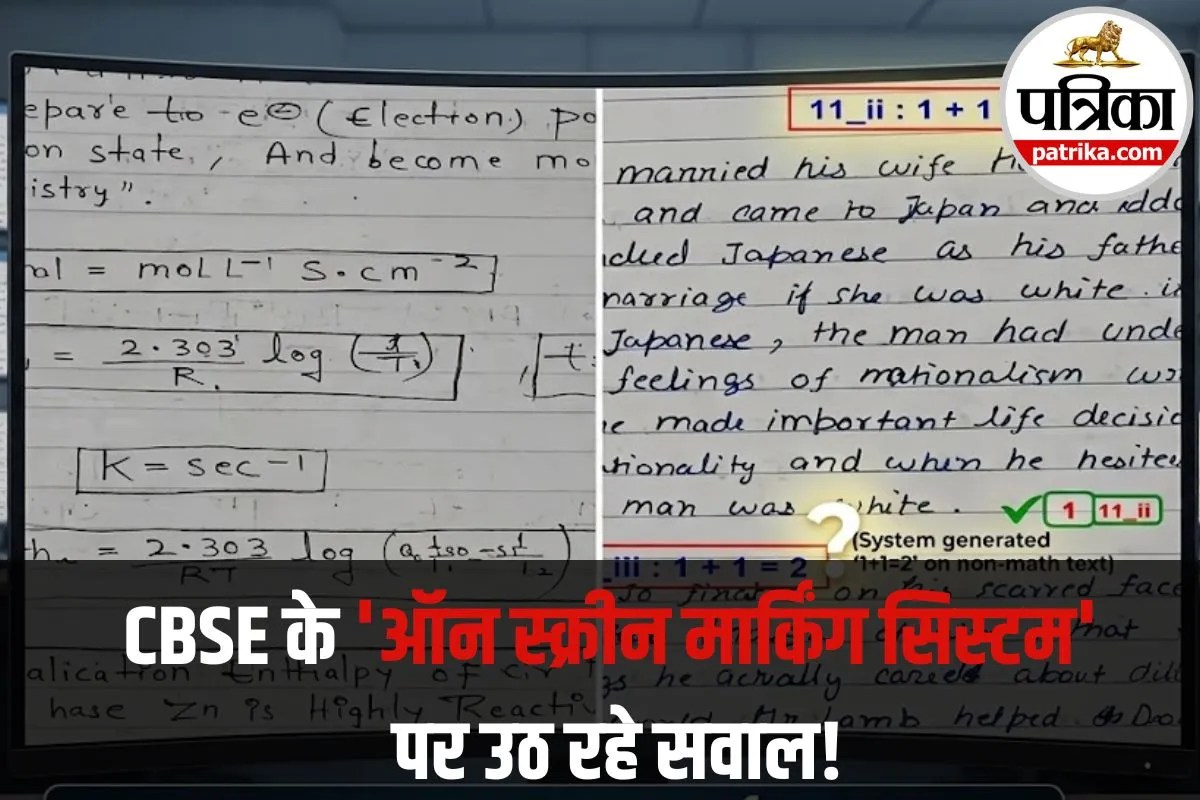 पत्रिका
patrika.com
epare to e⊖ (Election) po
on state, And become mo
istry".
al = moLL⁻¹ S.cm⁻²
= 2.303 log
R.
K = sec⁻¹
= 2.303 log
RT
Enthalpy of
hase Zn is Highly Reacti
11_ii : 1 + 1
mannied his wife
and came to Japan and
Japanese as his fathe
narriage if she was white i
Japanese, the man had unde
feelings of nationalism
made important life decisio
tionality and when he hesitee
man was white.
✓ 1 11_ii
?
(System generated
'1+1=2' on non-math text)
_iii : 1 + 1 = 2
on his scarred face
that
he actually careed about
Lamb helped
CBSE के 'ऑन स्क्रीन मार्किंग सिस्टम'
पर उठ रहे सवाल!